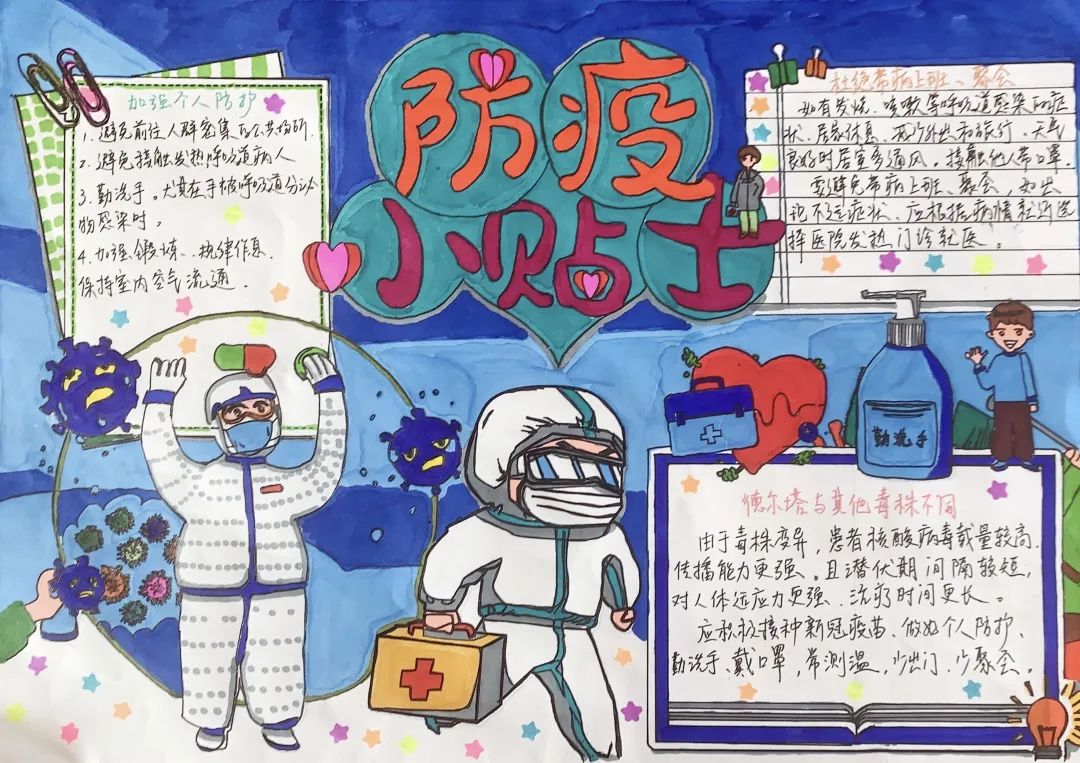 防疫
小贴士
加强个人防护
1. 避免前往人群密集的公共场所.
2. 避免接触发热呼吸道病人
3. 勤洗手。尤其在手被呼吸道分泌
物感染时。
4. 加强锻炼、规律作息.
保持室内空气流通.
杜绝带病上班、聚会
如有发烧、咳嗽等呼吸道感染的症
状、居家休息、减少外出和旅行、天气
良好时居室多通风。接触他人带口罩.
要避免带病上班、聚会、如出
现不适症状、应根据病情就近选
择医院发热门诊就医。
勤洗手
德尔塔与其他毒株不同
由于毒株变异,患者核酸病毒载量较高.
传播能力更强。且潜伏期间隔较短,
对人体适应力更强、治疗时间更长。
应积极接种新冠疫苗.做好个人防护,
勤洗手、戴口罩,常测温,少出门、少聚会。